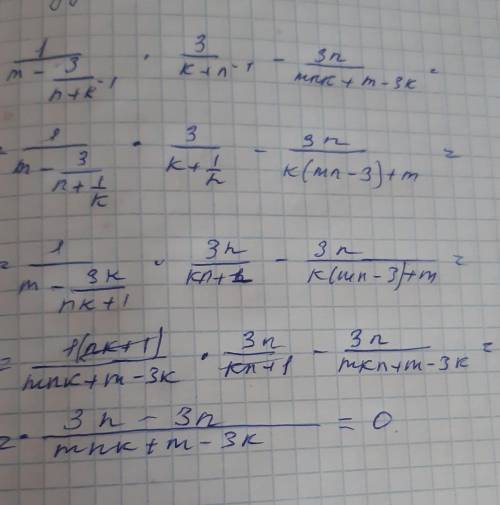 1/(m - 3/(n+k⁻¹)) · 3/(k+n⁻¹) - 3n/(mnk+m-3k) =
= 1/(m - 3/(n+1/k)) · 3/(k+1/n) - 3n/(k(mn-3)+m) =
= 1/(m - 3k/(nk+1)) · 3n/(kn+1) - 3n/(k(mn-3)+m) =
= 1(nk+1)/(mnk+m-3k) · 3n/(kn+1) - 3n/(mkn+m-3k) =
= (3n-3n)/(mnk+m-3k) = 0.